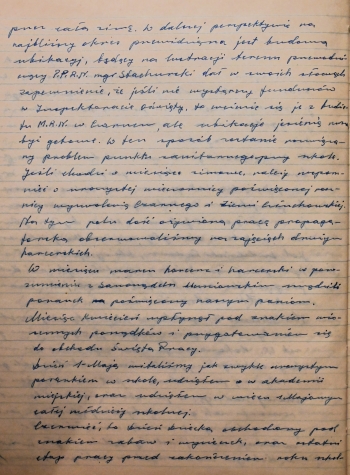 przez całą zimę. W dalszej perspektywie na
najbliższy okres przewidziana jest budowa
ubikacji, będący na lustracji terenu przewodni-
czący P.P.R.N. mgr Stachurski dał w swoich słowach
zapewnienie, że jeśli nie wystarczy funduszów
w Inspektoracie Oświaty, to weźmie się je z budże-
tu M.R.N. w Czarnem, ale ubikacje jesienią mają
być gotowe. W ten sposób zostanie rozwiąza-
ny problem punktu sanitarnego przy szkole.
Jeśli chodzi o miesiące zimowe, należy wspom-
nieć o uroczystej wieczornicy poświęconej rocz-
nicy wyzwolenia Czarnego i Ziemi Człuchowskiej.
Na tym polu dość ożywioną pracę propaga-
torską obserwowaliśmy na zajęciach drużyn
harcerskich.
W miesiącu marcu harcerze i harcerki w poro-
zumieniu z Samorządem Uczniowskim urządzili
poranek poświęcony naszym paniom.
Miesiąc kwiecień upłynął pod znakiem wio-
sennych porządków i przygotowaniem się
do obchodu Święta Pracy.
Dzień 1-Maja witaliśmy jak zwykle uroczystym
porankiem w szkole, udziałem w akademii
miejskiej, oraz udziałem w wiecu 1-Majowym
całej młodzieży szkolnej.
Czerwiec, to Dzień Dziecka, obchodzony pod
znakiem zabaw i wycieczek, oraz ostatni
etap pracy przed zakończeniem roku szkol-